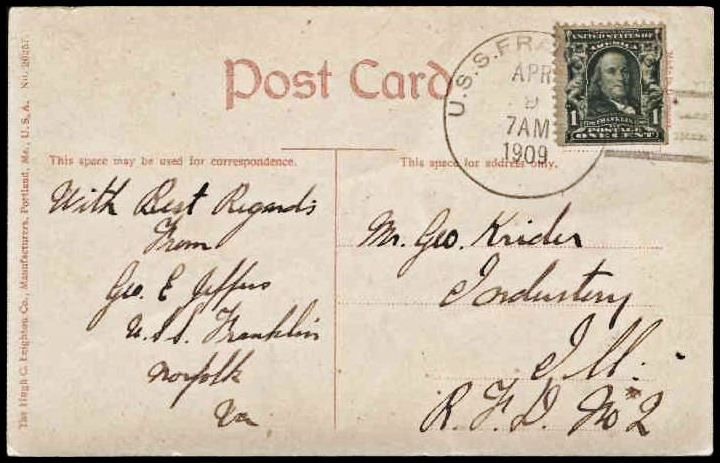 Post Card
U.S.S.FRA
APR
9
7AM
1909
UNITED STATES OF
AMERICA
1 FRANKLIN 1
POSTAGE
ONE CENT
This space may be used for correspondence.
This space for address only.
With Best Regards
From
Geo. E Jeffers
U.S.S. Franklin
Norfolk
Va
Mr. Geo. Krider
Industry
Ill.
R. F. D. No 2
The Hugh C. Leighton Co., Manufacturers, Portland, Me., U. S. A. No.